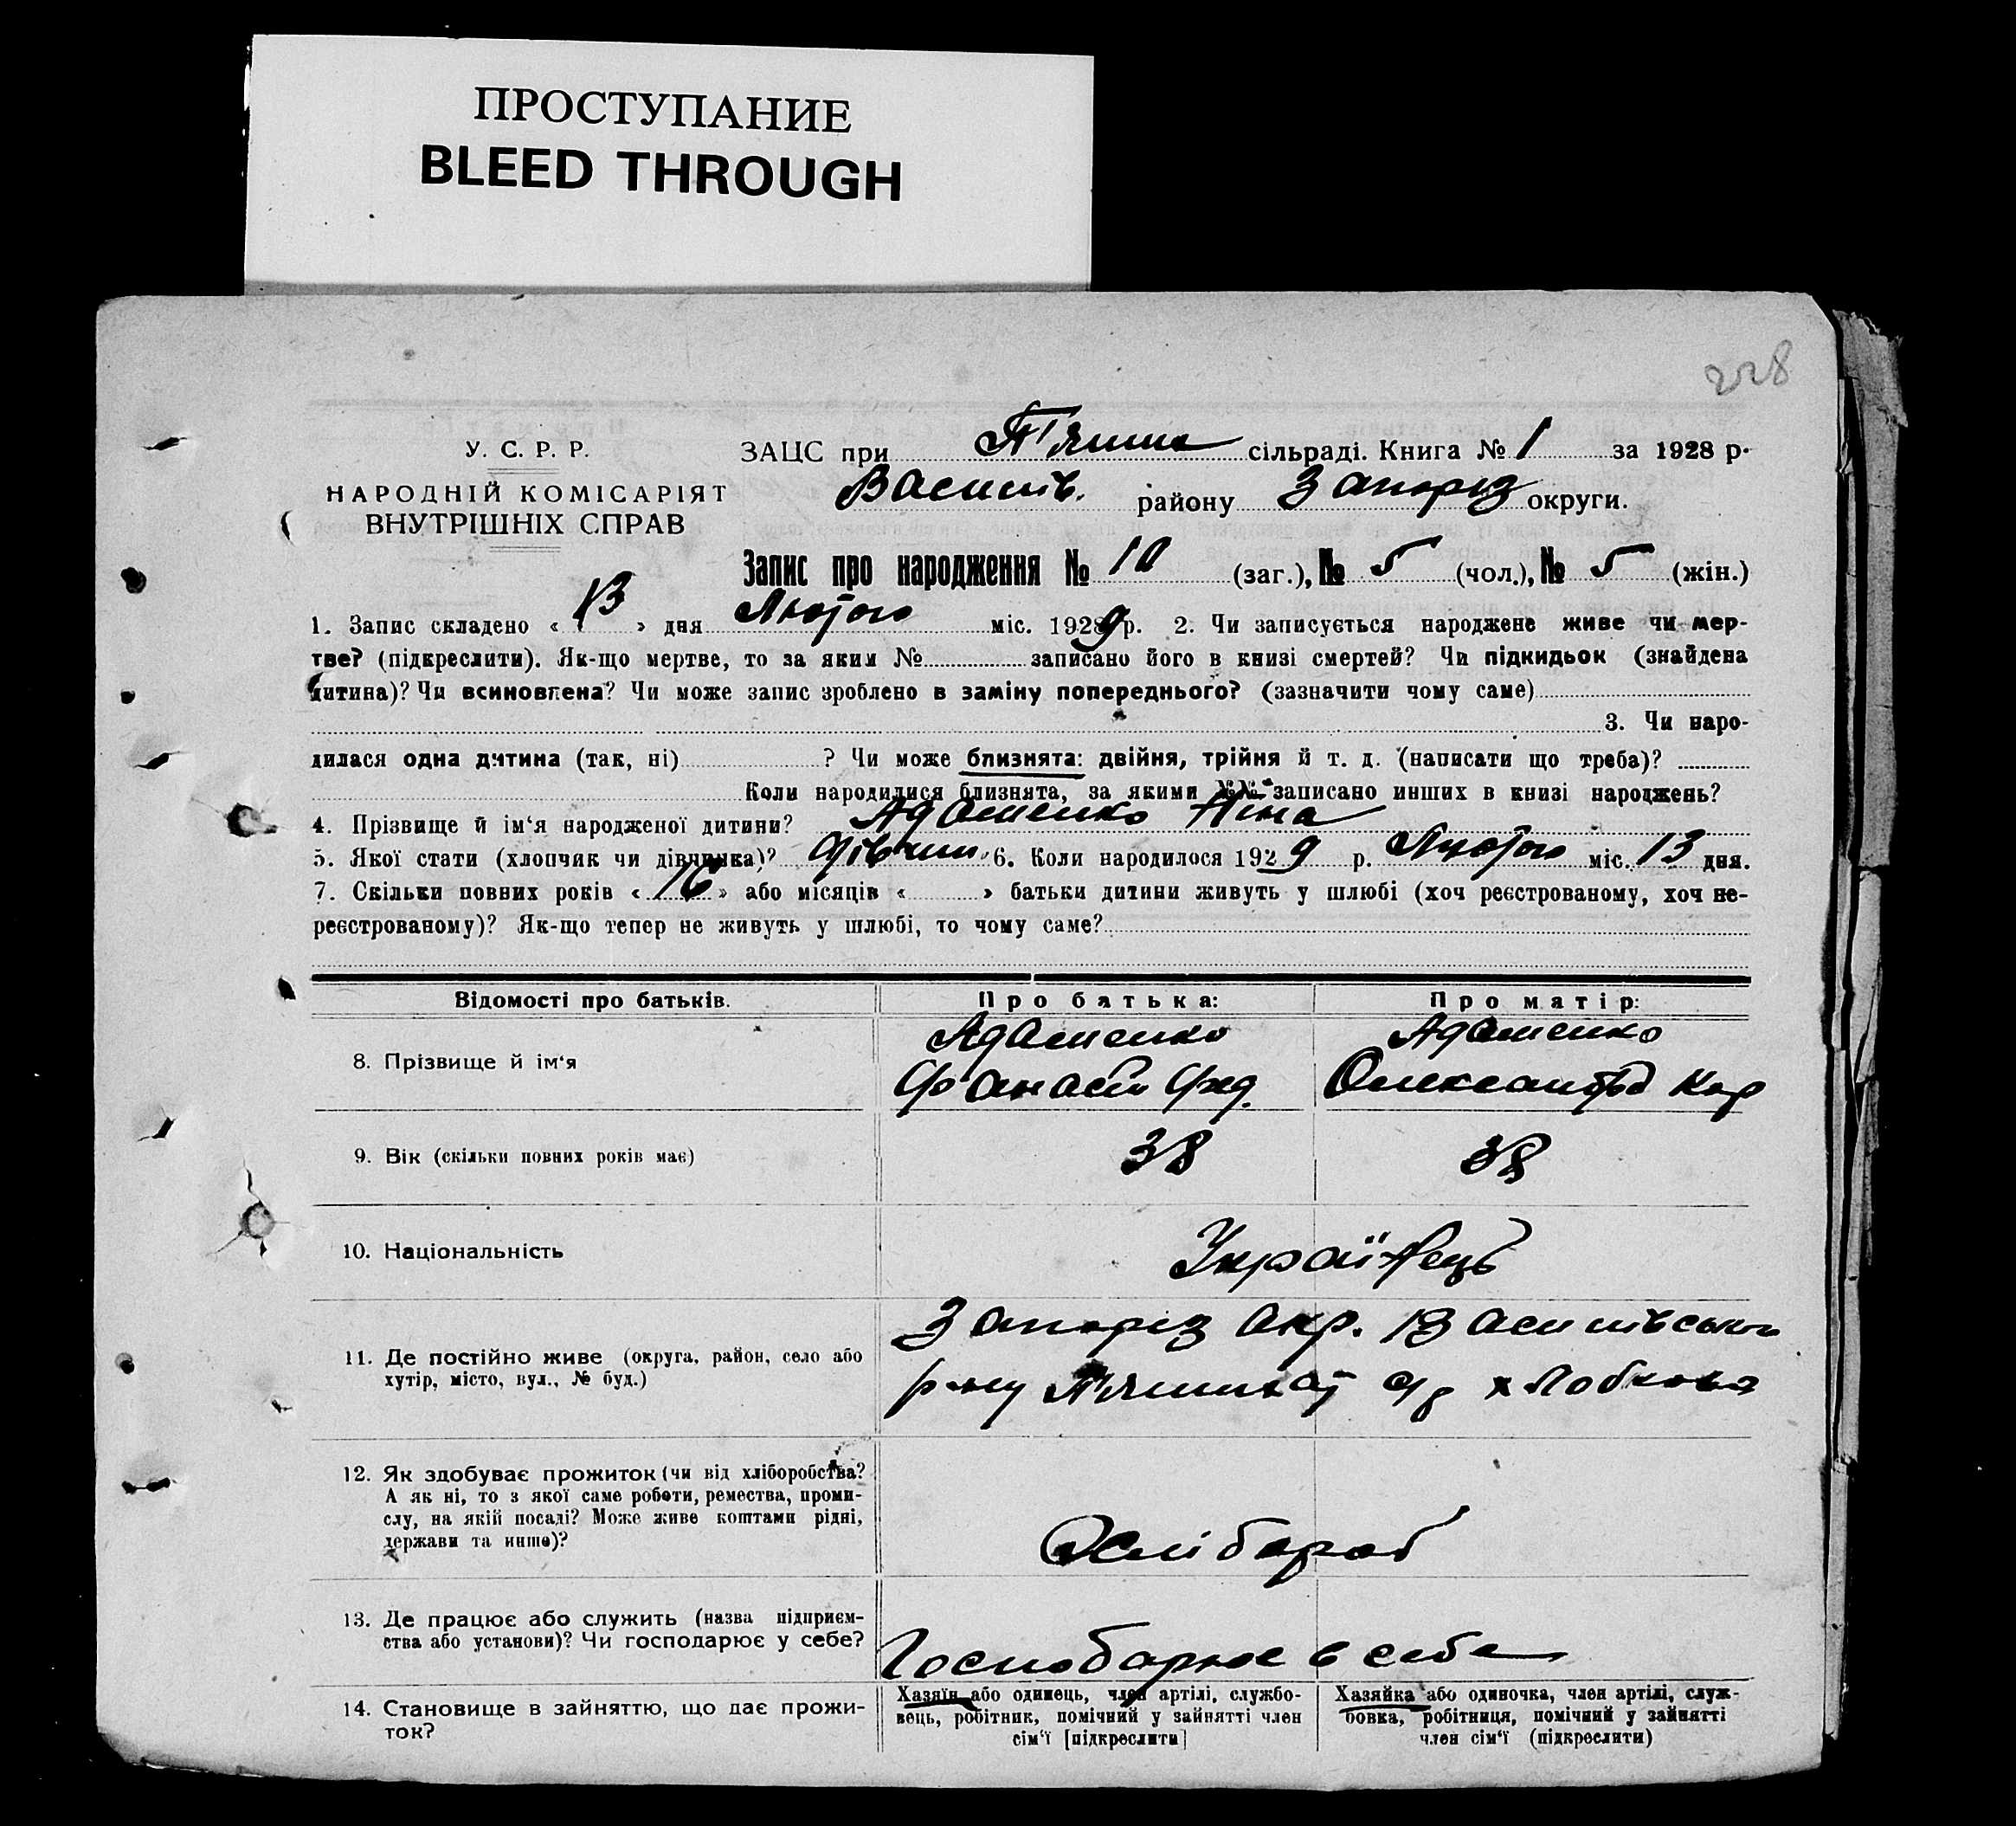 ПРОСТУПАНИЕ
BLEED THROUGH
228
У. С. Р. Р.
НАРОДНІЙ КОМІСАРІЯТ
ВНУТРІШНІХ СПРАВ
ЗАЦС при сільраді. Книга № 1 за 1928 р.
Василів. району Запоріз округи.
Запис про народження № 10 (заг.), № 5 (чол.), № 5 (жін.)
1. Запис складено « 13 » дня Лютого міс. 1929 р. 2. Чи записується народжене живе чи мер-
тве? (підкреслити). Як-що мертве, то за яким № записано його в книзі смертей? Чи підкидьок (знайдена
дитина)? Чи всиновлена? Чи може запис зроблено в заміну попереднього? (зазначити чому саме)
3. Чи наро-
дилася одна дитина (так, ні) ? Чи може близнята: двійня, трійня й т. д. (написати що треба)?
Коли народилися близнята, за якими №№ записано инших в книзі народжень?
4. Прізвище й ім‘я народженої дитини? Адаменко Ніна
5. Якої стати (хлопчик чи дівчинка)? Дівчин 6. Коли народилося 1929 р. Лютого міс. 13 дня.
7. Скільки повних років « 16 » або місяців « » батьки дитини живуть у шлюбі (хоч реєстрованому, хоч не-
реєстрованому)? Як-що тепер не живуть у шлюбі, то чому саме?
Відомості про батьків. Про батька: Про матір:
8. Прізвище й ім‘я
Адаменко Адаменко
Фед. Олександра Кар
9. Вік (скільки повних років має) 38 38
10. Національність Українець
11. Де постійно живе (округа, район, село або
хутір, місто, вул., № буд.)
Запоріз окр. Василівськ
р-ну с/р х
12. Як здобуває прожиток (чи від хліборобства?
А як ні, то з якої саме роботи, ремества, проми-
слу, на якій посаді? Може живе коштами рідні,
держави та инше)?
Хлібороб
13. Де працює або служить (назва підприєм-
ства або установи)? Чи господарює у себе?
Господарює в себе
14. Становище в зайняттю, що дає прожи-
ток?
Хазяїн або одинець, член артілі, службо-
вець, робітник, помічний у зайнятті член
сім‘ї [підкреслити]
Хазяйка або одиночка, член артілі, служ-
бовка, робітниця, помічний у зайнятті
член сім‘ї (підкреслити)